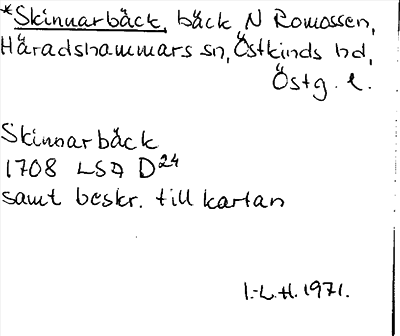 *Skinnarbäck, bäck N Romossen,
Häradshammars sn, Östkinds hd,
Östg. l.
Skinnarbäck
1708 LSA D24
samt beskr. till kartan
I.-L.H. 1971.